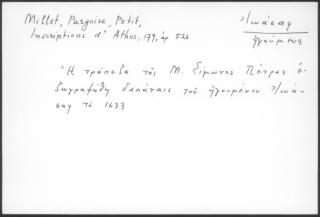 Millet, Pargoire, Petit,
Inscriptions d'Athos, 179, ἀρ 526
Ἰωάσαφ
ἡγούμενος
Ἡ τράπεζα τῆς Μ. Σίμωνος Πέτρας ἐ-
ζωγραφήθη δαπάναις τοῦ ἡγουμένου Ἰωά-
σαφ τὸ 1633